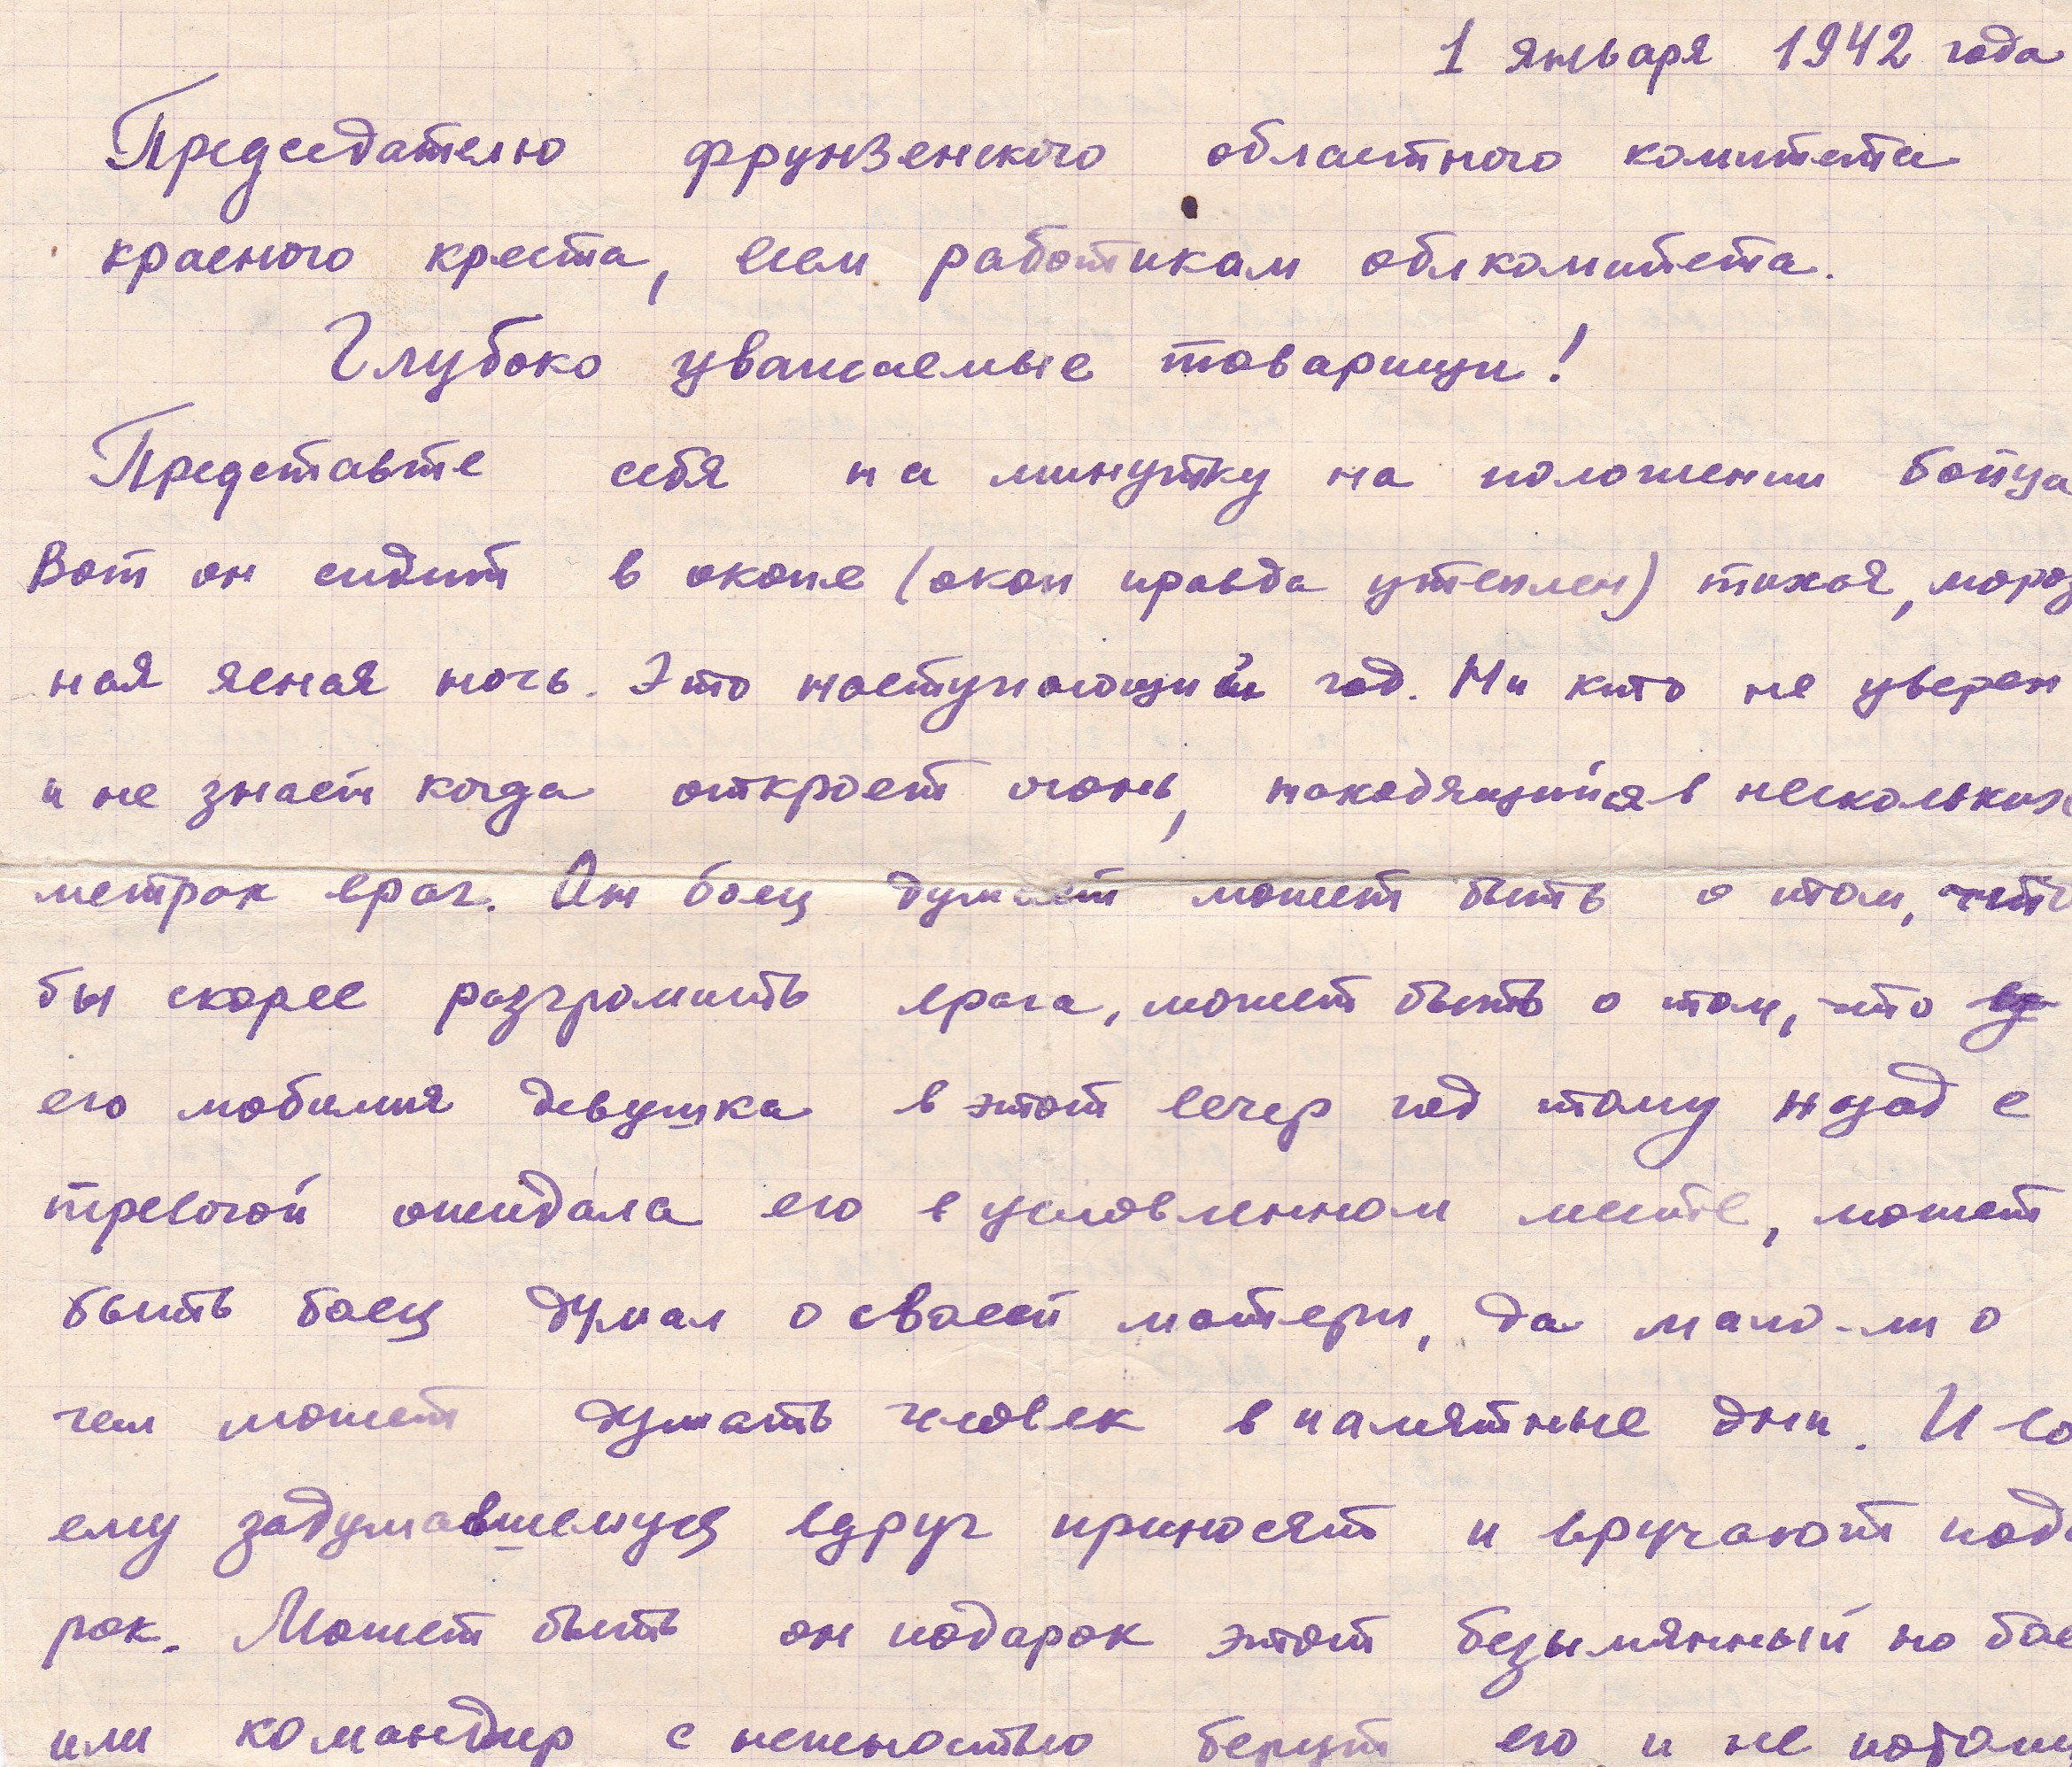 1 января 1942 года
Председателю фрунзенского областного комитета
красного креста, всем работикам облкомитета.
Глубоко уважаемые товарищи!
Представте себя на минутку на положении бойца
Вот он сидит в окопе (окоп правда утеплен) тихая, мороз
ная ясная ночь. Это наступающий год. Ни кто не уверен
и не знает когда откроет огонь, находящийся в нескольких
метрах враг. Он боец думает может быть о том, что
бы скорее разгромить врага, может быть о том, что
его любимия девушка в этот вечер год тому назад с
тревогой ожидала его в условленном месте, может
быть боец думал о своей матери, да мало-ли о
чем может думать человек в памятные дни. И во
ему задумавшемуся вдруг приносят и вручают пода
рок. Может быть он подарок этот безымянный но бое
или командир с нежностью берут его и не потому